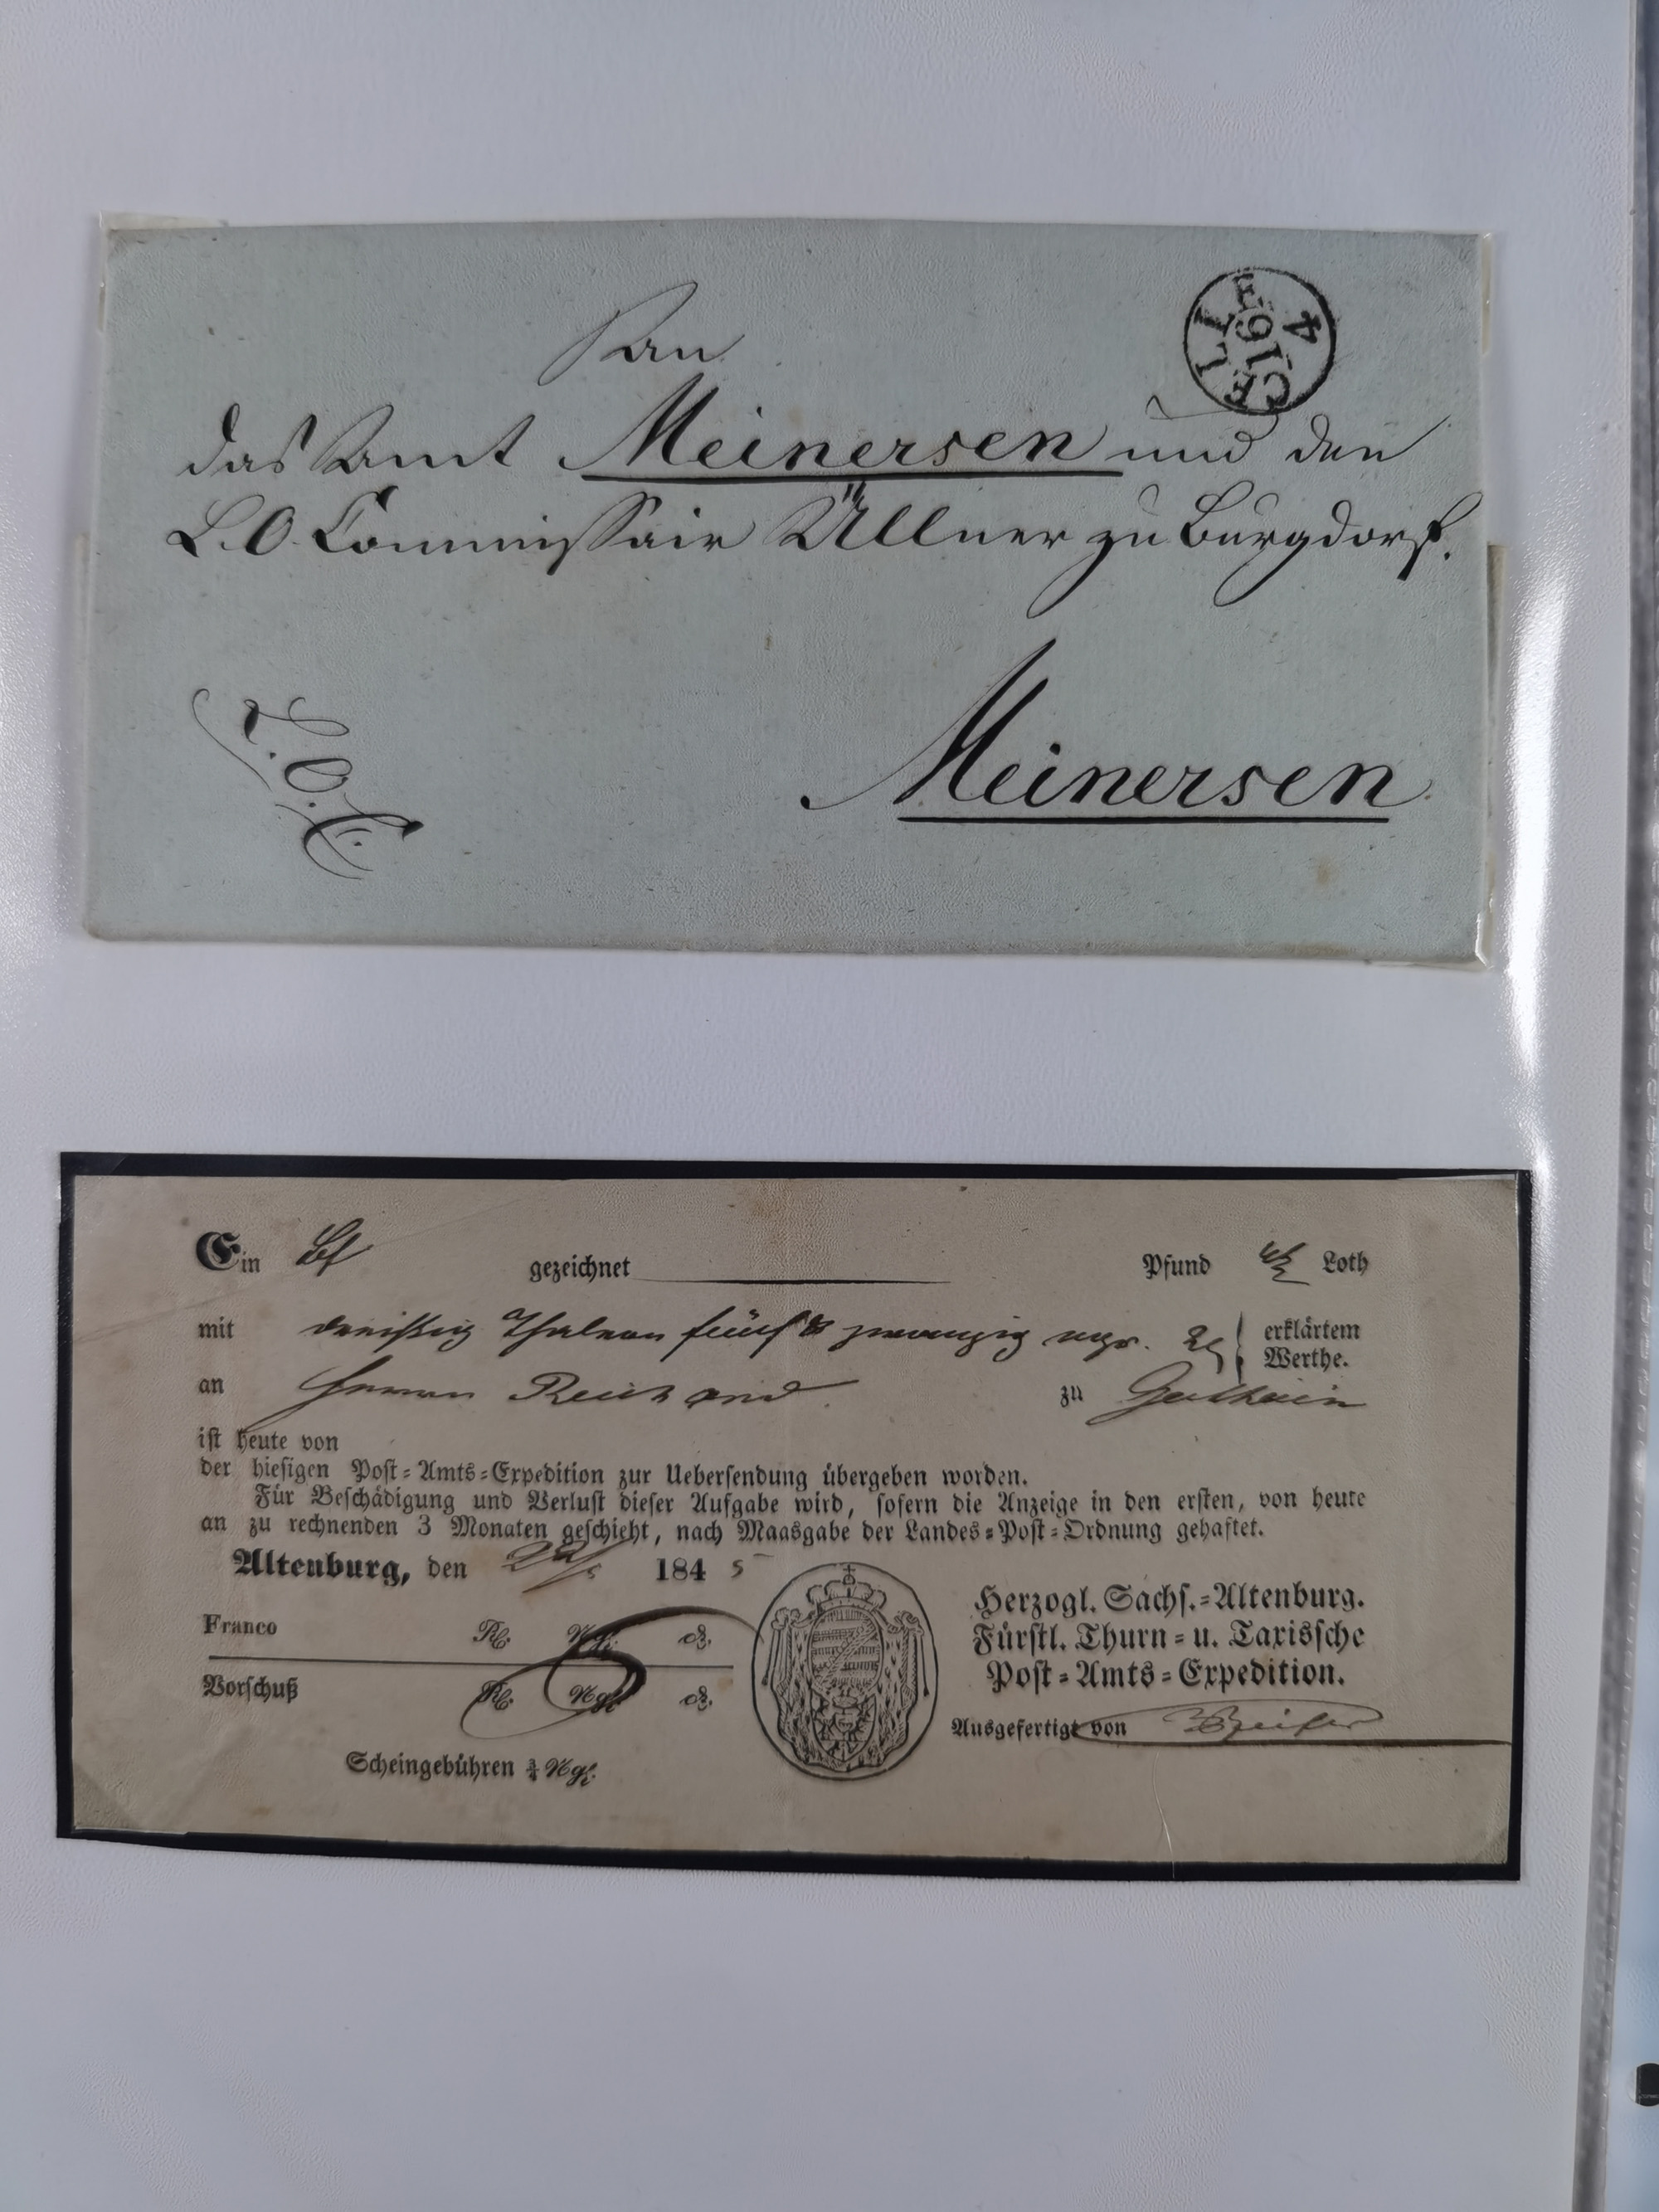 An
das Amt Meinersen und den
L.O. Commissair Üllner zu Burgdorf.
Meinersen
L.O.C.
CELLE
16
4
Ein Bf gezeichnet Pfund Loth
mit dreißig Thalern fünf & zwanzig ngr. erklärtem
Werthe.
an Herrn zu
ist heute von
der hiesigen Post-Amts-Expedition zur Uebersendung übergeben worden.
Für Beschädigung und Verlust dieser Aufgabe wird, sofern die Anzeige in den ersten, von heute
an zu rechnenden 3 Monaten geschieht, nach Maasgabe der Landes-Post-Ordnung gehaftet.
Altenburg, den 184 5
Franco Rℓ. Ngr. ₰.
Vorschuß Rℓ. Ngr. ₰.
Scheingebühren ¾ Ngr.
Herzogl. Sächs.-Altenburg.
Fürstl. Thurn- u. Taxissche
Post-Amts-Expedition.
Ausgefertigt von